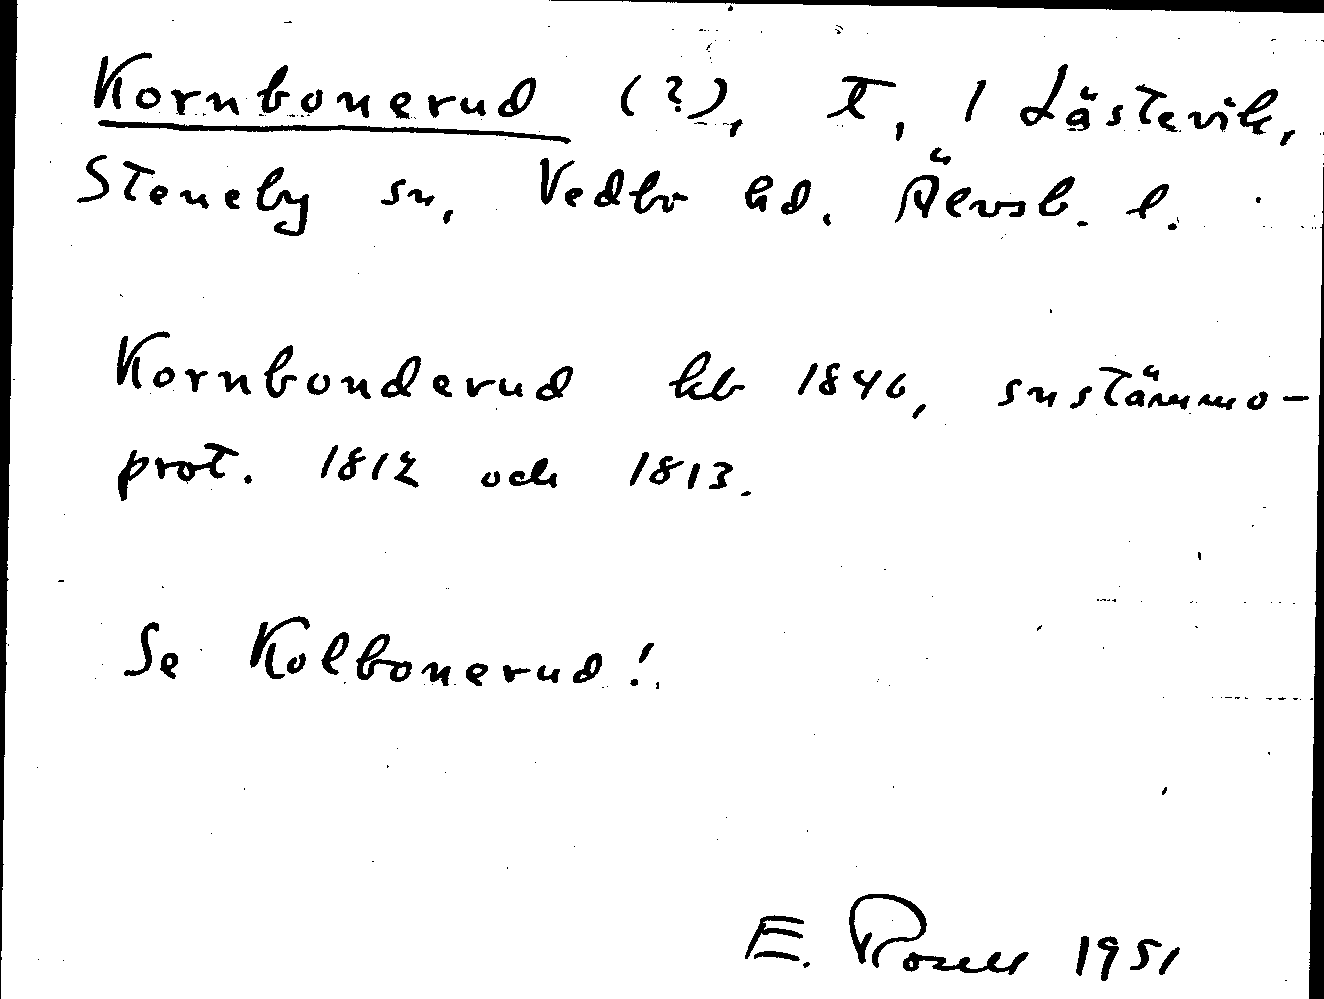 Kornbonerud (?), t, 1 Låstevik,
Steneby sn, Vedbo hd. Älvsb. l.
Kornbonderud kb 1846, snstämmo-
prot. 1812 och 1813.
Se Kolbonerud!
E. Rosell 1951